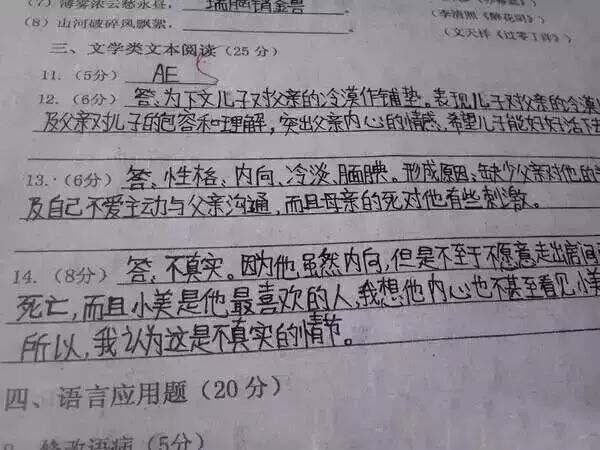 (7) 薄雾浓云愁永昼, 瑞脑销金兽
(8) 山河破碎风飘絮, (李清照《醉花阴》)
(文天祥《过零丁洋》)
三、文学类文本阅读(25分)
11. (5分) AE
12. (6分) 答:为下文儿子对父亲的冷漠作铺垫。表现儿子对父亲的冷漠
及父亲对儿子的包容和理解,突出父亲内心的情感,希望儿子能好好活下去
13. (6分) 答:性格、内向、冷淡、腼腆。形成原因:缺少父亲对他的
及自己不爱主动与父亲沟通,而且母亲的死对他有些刺激。
14. (8分) 答:不真实。因为他虽然内向,但是不至于不愿意走出房间
死亡,而且小美是他最喜欢的人,我想他内心也不甚至看见小美
所以,我认为这是不真实的情节。
四、语言应用题(20分)
修改语病(5分)